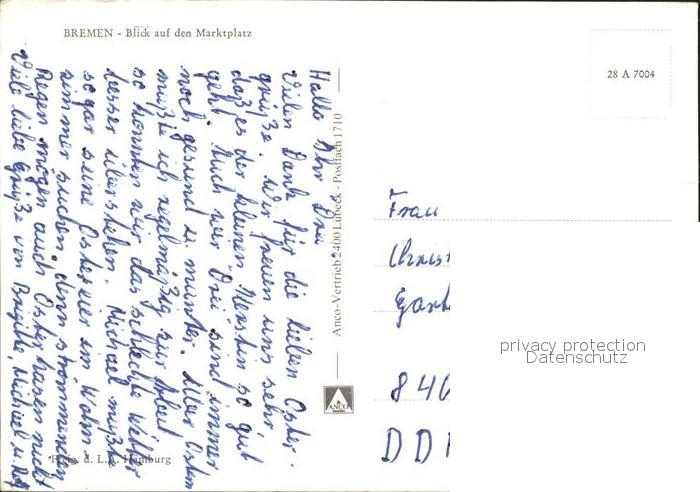 BREMEN - Blick auf den Marktplatz
28 A 7004
Hallo Ihr Drei
Vielen Dank für die lieben Oster-
grüße. Wir freuen uns sehr,
daß es der kleinen Kerstin so gut
geht. Auch wir Drei sind immer
noch gesund u. munter. Über Ostern
mußte ich regelmäßig zur Arbeit
so konnten wir das schlechte Wetter
besser überstehen. Michael mußte
sogar seine Ostereier im Wohn-
zimmer suchen, denn strömenden
Regen mögen auch Osterhasen nicht
Viele liebe Grüße von Brigitte, Michael u.
Anco-Vertrieb 2400 Lübeck - Postfach 1710
ANCO
Frau
Christ
Gart
840
DDR
privacy protection
Datenschutz
Freig. d. L.A. Hamburg